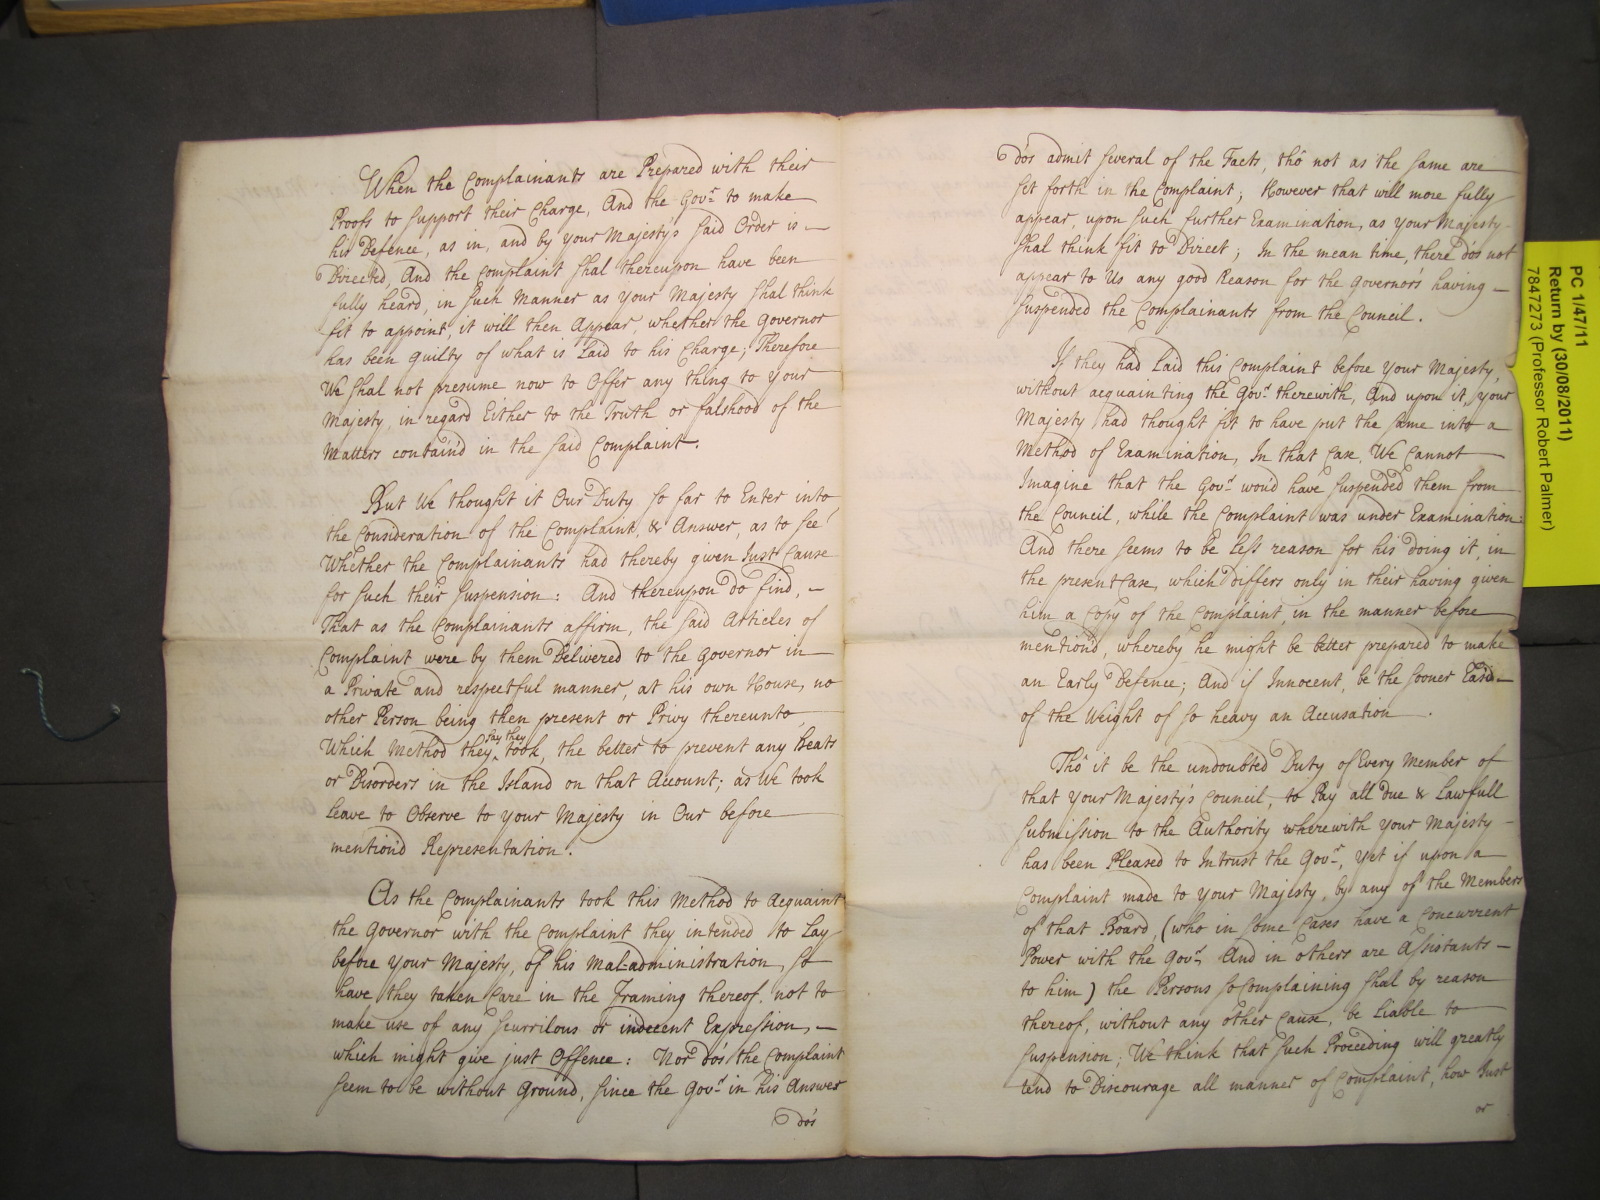 When the Complainants are Prepared with their
Proofs to support their Charge, And the Govr. to make
his Defence, as in, and by your Majesty's said Order is
Directed, And the Complaint shal thereupon have been
fully heard, in such Manner as your Majesty shal think
fit to appoint, it will then Appear, whether the Governor
has been guilty of what is Laid to his Charge; Therefore
We shal not presume now to Offer any thing to your
Majesty, in regard Either to the Truth or falshood of the
Matters contain'd in the said Complaint.
But We thought it Our Duty so far to Enter into
the Consideration of the Complaint, & Answer, as to see
Whether the Complainants had thereby given Just Cause
for such their Suspension: And thereupon do find,
That as the Complainants affirm, the said Articles of
Complaint were by them Delivered to the Governor in
a Private and respectful manner, at his own House, no
other Person being then present or Privy thereunto,
say they
Which Method they ^ took, the better to prevent any Heats
or Disorders in the Island on that Account; as We took
Leave to Observe to your Majesty in Our before
mention'd Representation.
As the Complainants took this Method to Acquaint
the Governor with the Complaint they intended to Lay
before your Majesty, of his Mal-administration, so
have they taken Care in the Framing thereof, not to
make use of any scurrilous or indecent Expression,
which might give just Offence: Nor do's the Complaint
seem to be without Ground, since the Govr. in his Answer
do's
do's admit several of the Facts, tho' not as the same are
set forth in the Complaint; However that will more fully
appear, upon such further Examination, as your Majesty
shal think fit to Direct; In the mean time, there do's not
appear to Us any good Reason for the Governor's having
suspended the Complainants from the Council.
If they had Laid this Complaint before your Majesty,
without acquainting the Govr. therewith, And upon it, your
Majesty had thought fit to have put the same into a
Method of Examination, In that Case, We Cannot
Imagine that the Govr. wou'd have suspended them from
the Council, while the Complaint was under Examination:
And there seems to be Less reason for his doing it, in
the present Case, which differs only in their having given
him a Copy of the Complaint, in the manner before
mention'd, whereby he might be better prepared to make
an Early Defence; And if Innocent, be the sooner Eas'd
of the Weight of so heavy an Accusation.
Tho' it be the undoubted Duty of Every Member of
that your Majesty's Council, to Pay all due & Lawfull
Submission to the Authority wherewith your Majesty
has been Pleased to Intrust the Govr., yet if upon a
Complaint made to your Majesty, by any of the Members
of that Board, (who in some Cases have a Concurrent
Power with the Govr. And in others are Assistants
to him) the Persons so Complaining shal by reason
thereof, without any other Cause, be Liable to
Suspension; We think that such Proceeding will greatly
tend to Discourage all manner of Complaint, how Just
or
PC 1/47/11
Return by (30/08/2011)
7847273 (Professor Robert Palmer)